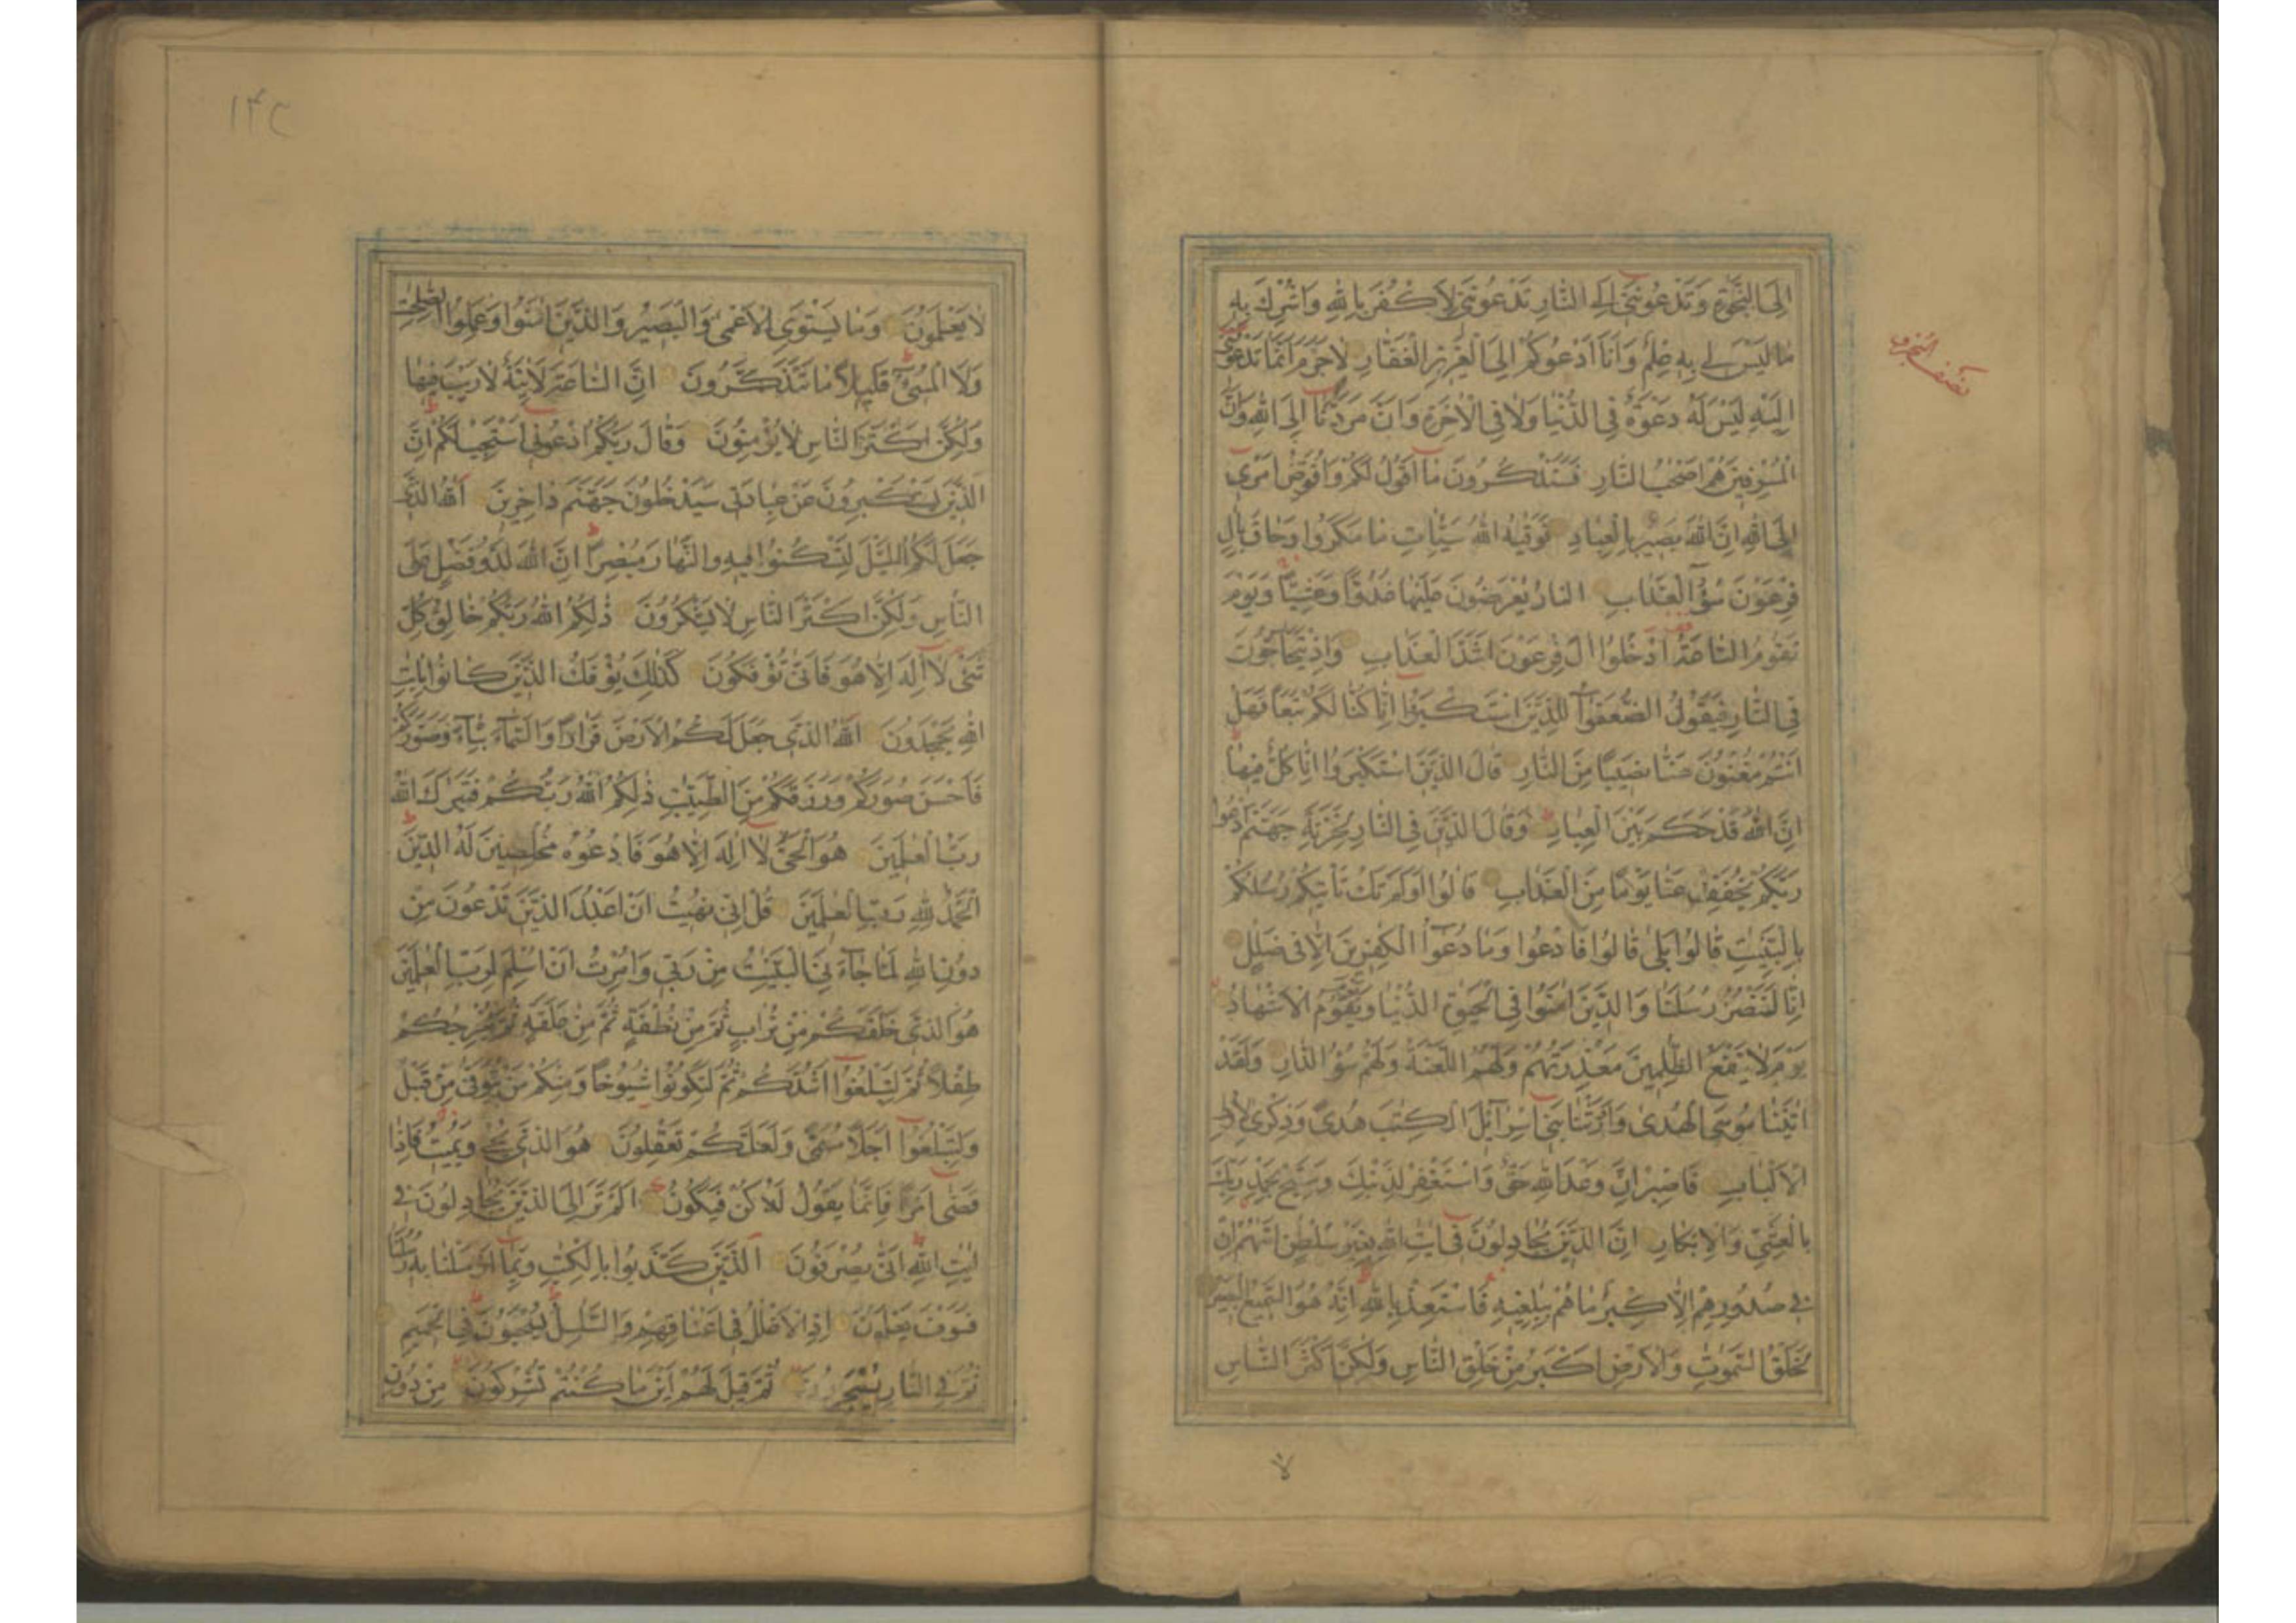 إِلَى النَّجٰوةِ وَتَدْعُونَنِي إِلَى النَّارِ تَدْعُونَنِي لِأَكْفُرَ بِاللهِ وَأُشْرِكَ بِهِ
مَا لَيْسَ لِي بِهِ عِلْمٌ وَأَنَا أَدْعُوكُمْ إِلَى الْعَزِيزِ الْغَفَّارِ لَا جَرَمَ أَنَّمَا تَدْعُونَنِي
إِلَيْهِ لَيْسَ لَهُ دَعْوَةٌ فِي الدُّنْيَا وَلَا فِي الْاٰخِرَةِ وَأَنَّ مَرَدَّنَا إِلَى اللهِ وَأَنَّ
الْمُسْرِفِينَ هُمْ أَصْحٰبُ النَّارِ فَسَتَذْكُرُونَ مَا أَقُولُ لَكُمْ وَأُفَوِّضُ أَمْرِي
إِلَى اللهِ إِنَّ اللهَ بَصِيرٌ بِالْعِبَادِ فَوَقٰيهُ اللهُ سَيِّئَاتِ مَا مَكَرُوا وَحَاقَ بِاٰلِ
فِرْعَوْنَ سُوءُ الْعَذَابِ النَّارُ يُعْرَضُونَ عَلَيْهَا غُدُوًّا وَعَشِيًّا وَيَوْمَ
تَقُومُ السَّاعَةُ أَدْخِلُوا اٰلَ فِرْعَوْنَ أَشَدَّ الْعَذَابِ وَإِذْ يَتَحَاجُّونَ
فِي النَّارِ فَيَقُولُ الضُّعَفٰؤُا لِلَّذِينَ اسْتَكْبَرُوا إِنَّا كُنَّا لَكُمْ تَبَعًا فَهَلْ
أَنْتُمْ مُغْنُونَ عَنَّا نَصِيبًا مِنَ النَّارِ قَالَ الَّذِينَ اسْتَكْبَرُوا إِنَّا كُلٌّ فِيهَا
إِنَّ اللهَ قَدْ حَكَمَ بَيْنَ الْعِبَادِ وَقَالَ الَّذِينَ فِي النَّارِ لِخَزَنَةِ جَهَنَّمَ ادْعُوا
رَبَّكُمْ يُخَفِّفْ عَنَّا يَوْمًا مِنَ الْعَذَابِ قَالُوا أَوَلَمْ تَكُ تَأْتِيكُمْ رُسُلُكُمْ
بِالْبَيِّنٰتِ قَالُوا بَلٰى قَالُوا فَادْعُوا وَمَا دُعٰؤُا الْكٰفِرِينَ إِلَّا فِي ضَلٰلٍ
إِنَّا لَنَنْصُرُ رُسُلَنَا وَالَّذِينَ اٰمَنُوا فِي الْحَيٰوةِ الدُّنْيَا وَيَوْمَ يَقُومُ الْأَشْهَادُ
يَوْمَ لَا يَنْفَعُ الظّٰلِمِينَ مَعْذِرَتُهُمْ وَلَهُمُ اللَّعْنَةُ وَلَهُمْ سُوءُ الدَّارِ وَلَقَدْ
اٰتَيْنَا مُوسَى الْهُدٰى وَأَوْرَثْنَا بَنِي إِسْرَآئِلَ الْكِتٰبَ هُدًى وَذِكْرٰى لِأُولِي
الْأَلْبَابِ فَاصْبِرْ إِنَّ وَعْدَ اللهِ حَقٌّ وَاسْتَغْفِرْ لِذَنْبِكَ وَسَبِّحْ بِحَمْدِ رَبِّكَ
بِالْعَشِيِّ وَالْإِبْكَارِ إِنَّ الَّذِينَ يُجَادِلُونَ فِي اٰيٰتِ اللهِ بِغَيْرِ سُلْطٰنٍ أَتٰهُمْ إِنْ
فِي صُدُورِهِمْ إِلَّا كِبْرٌ مَا هُمْ بِبٰلِغِيهِ فَاسْتَعِذْ بِاللهِ إِنَّهُ هُوَ السَّمِيعُ الْبَصِيرُ
لَخَلْقُ السَّمٰوٰتِ وَالْأَرْضِ أَكْبَرُ مِنْ خَلْقِ النَّاسِ وَلٰكِنَّ أَكْثَرَ النَّاسِ
لا
١٤٢
لَا يَعْلَمُونَ وَمَا يَسْتَوِي الْأَعْمٰى وَالْبَصِيرُ وَالَّذِينَ اٰمَنُوا وَعَمِلُوا الصّٰلِحٰتِ
وَلَا الْمُسِيءُ قَلِيلًا مَا تَتَذَكَّرُونَ إِنَّ السَّاعَةَ لَاٰتِيَةٌ لَا رَيْبَ فِيهَا
وَلٰكِنَّ أَكْثَرَ النَّاسِ لَا يُؤْمِنُونَ وَقَالَ رَبُّكُمُ ادْعُونِي أَسْتَجِبْ لَكُمْ إِنَّ
الَّذِينَ يَسْتَكْبِرُونَ عَنْ عِبَادَتِي سَيَدْخُلُونَ جَهَنَّمَ دَاخِرِينَ اَللهُ الَّذِي
جَعَلَ لَكُمُ اللَّيْلَ لِتَسْكُنُوا فِيهِ وَالنَّهَارَ مُبْصِرًا إِنَّ اللهَ لَذُو فَضْلٍ عَلَى
النَّاسِ وَلٰكِنَّ أَكْثَرَ النَّاسِ لَا يَشْكُرُونَ ذٰلِكُمُ اللهُ رَبُّكُمْ خَالِقُ كُلِّ
شَيْءٍ لَا إِلٰهَ إِلَّا هُوَ فَأَنّٰى تُؤْفَكُونَ كَذٰلِكَ يُؤْفَكُ الَّذِينَ كَانُوا بِاٰيٰتِ
اللهِ يَجْحَدُونَ اَللهُ الَّذِي جَعَلَ لَكُمُ الْأَرْضَ قَرَارًا وَالسَّمَاءَ بِنَاءً وَصَوَّرَكُمْ
فَأَحْسَنَ صُوَرَكُمْ وَرَزَقَكُمْ مِنَ الطَّيِّبٰتِ ذٰلِكُمُ اللهُ رَبُّكُمْ فَتَبٰرَكَ اللهُ
رَبُّ الْعٰلَمِينَ هُوَ الْحَيُّ لَا إِلٰهَ إِلَّا هُوَ فَادْعُوهُ مُخْلِصِينَ لَهُ الدِّينَ
اَلْحَمْدُ لِلهِ رَبِّ الْعٰلَمِينَ قُلْ إِنِّي نُهِيتُ أَنْ أَعْبُدَ الَّذِينَ تَدْعُونَ مِنْ
دُونِ اللهِ لَمَّا جَاءَنِيَ الْبَيِّنٰتُ مِنْ رَبِّي وَأُمِرْتُ أَنْ أُسْلِمَ لِرَبِّ الْعٰلَمِينَ
هُوَ الَّذِي خَلَقَكُمْ مِنْ تُرَابٍ ثُمَّ مِنْ نُطْفَةٍ ثُمَّ مِنْ عَلَقَةٍ ثُمَّ يُخْرِجُكُمْ
طِفْلًا ثُمَّ لِتَبْلُغُوا أَشُدَّكُمْ ثُمَّ لِتَكُونُوا شُيُوخًا وَمِنْكُمْ مَنْ يُتَوَفّٰى مِنْ قَبْلُ
وَلِتَبْلُغُوا أَجَلًا مُسَمًّى وَلَعَلَّكُمْ تَعْقِلُونَ هُوَ الَّذِي يُحْيِي وَيُمِيتُ فَإِذَا
قَضٰى أَمْرًا فَإِنَّمَا يَقُولُ لَهُ كُنْ فَيَكُونُ أَلَمْ تَرَ إِلَى الَّذِينَ يُجَادِلُونَ فِي
اٰيٰتِ اللهِ أَنّٰى يُصْرَفُونَ اَلَّذِينَ كَذَّبُوا بِالْكِتٰبِ وَبِمَا أَرْسَلْنَا بِهِ رُسُلَنَا
فَسَوْفَ يَعْلَمُونَ إِذِ الْأَغْلٰلُ فِي أَعْنَاقِهِمْ وَالسَّلٰسِلُ يُسْحَبُونَ فِي الْحَمِيمِ
ثُمَّ فِي النَّارِ يُسْجَرُونَ ثُمَّ قِيلَ لَهُمْ أَيْنَ مَا كُنْتُمْ تُشْرِكُونَ مِنْ دُونِ